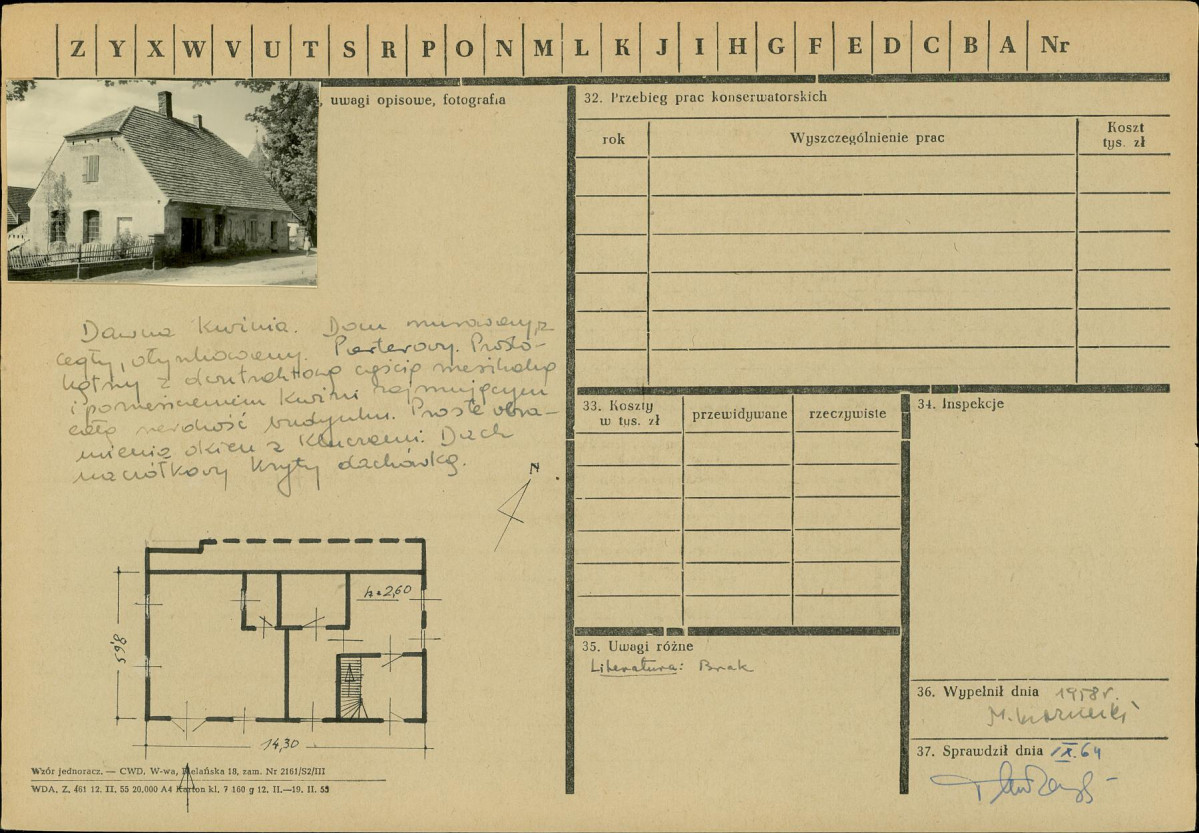 Z Y X W V U T S R P O N M L K J I H G F E D C B A Nr
uwagi opisowe, fotografia
Dawna Kuźnia. Dom murowany, z
cegły, otynkowany. Parterowy. Prosto-
kątny z dwutraktową częścią mieszkalną
i pomieszczeniem kuźni zajmującym
całą szerokość budynku. Proste obra-
mienia okien z kluczami. Dach
naczółkowy kryty dachówką.
N
h=2,60
8,65
14,30
Wzór jednoracz. — CWD, W-wa, Bielańska 18, zam. Nr 2161/S2/III
WDA, Z. 461 12. II. 55 20.000 A4 Karton kl. 7 160 g 12. II.—19. II. 55
32. Przebieg prac konserwatorskich
rok
Wyszczególnienie prac
Koszt
tys. zł
33. Koszty
w tys. zł
przewidywane
rzeczywiste
34. Inspekcje
35. Uwagi różne
Literatura: Brak
36. Wypełnił dnia 1958 r.
37. Sprawdził dnia IX. 64